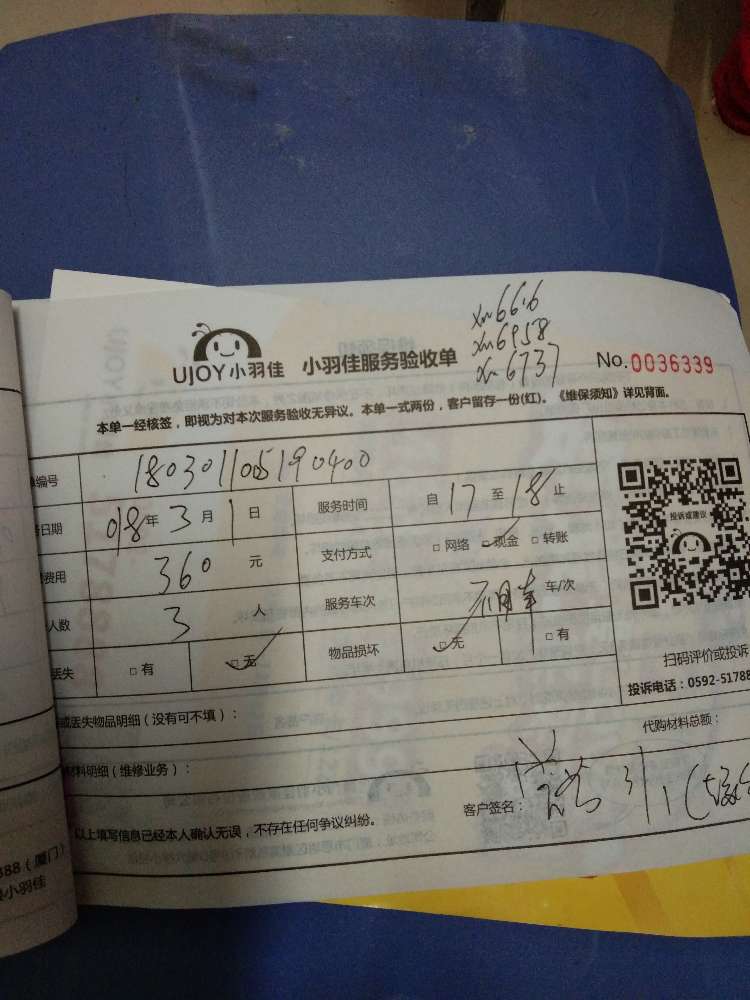 xm6616
xm6958
xm6737
UJOY小羽佳 小羽佳服务验收单 No.0036339
本单一经核签，即视为对本次服务验收无异议。本单一式两份，客户留存一份(红)。《维保须知》详见背面。
编号 180301105190400
日期 018年3月1日 服务时间 自17至18止
费用 360元 支付方式 □网络 □现金 □转账
人数 3人 服务车次 不用车 车/次
丢失 □有 □无 物品损坏 □无 □有
投诉或建议
扫码评价或投诉
投诉电话：0592-51788
或丢失物品明细（没有可不填）：
代购材料总额：
材料明细（维修业务）：
客户签名：
以上填写信息已经本人确认无误，不存在任何争议纠纷。
388（厦门）
小羽佳